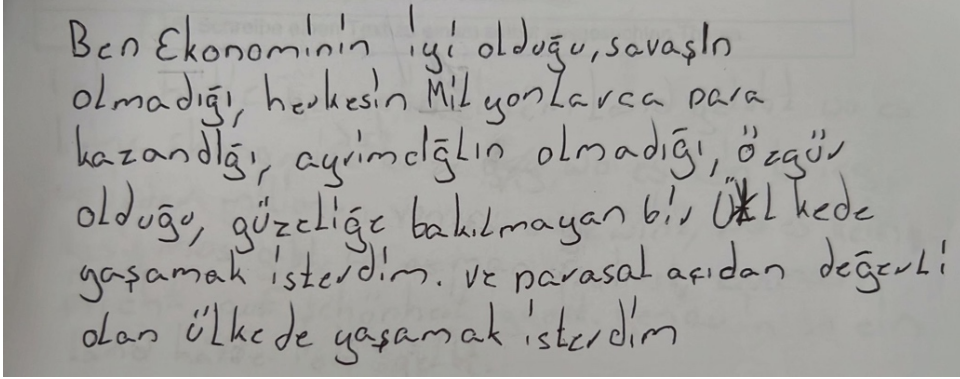 Ben Ekonominin iyi olduğu, savaşın
olmadığı, herkesin Milyonlarca para
kazandığı, ayrimclğlın olmadığı, özgür
olduğu, güzeliğe bakılmayan bir Ülkede
yaşamak isterdim. ve parasal açıdan değerli
olan ülkede yaşamak isterdim